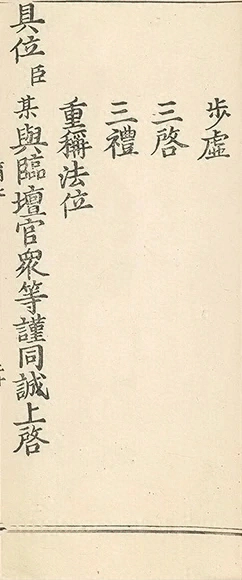 步虛
三啓
三禮
重稱法位
具位臣某與臨壇官衆等謹同誠上啓